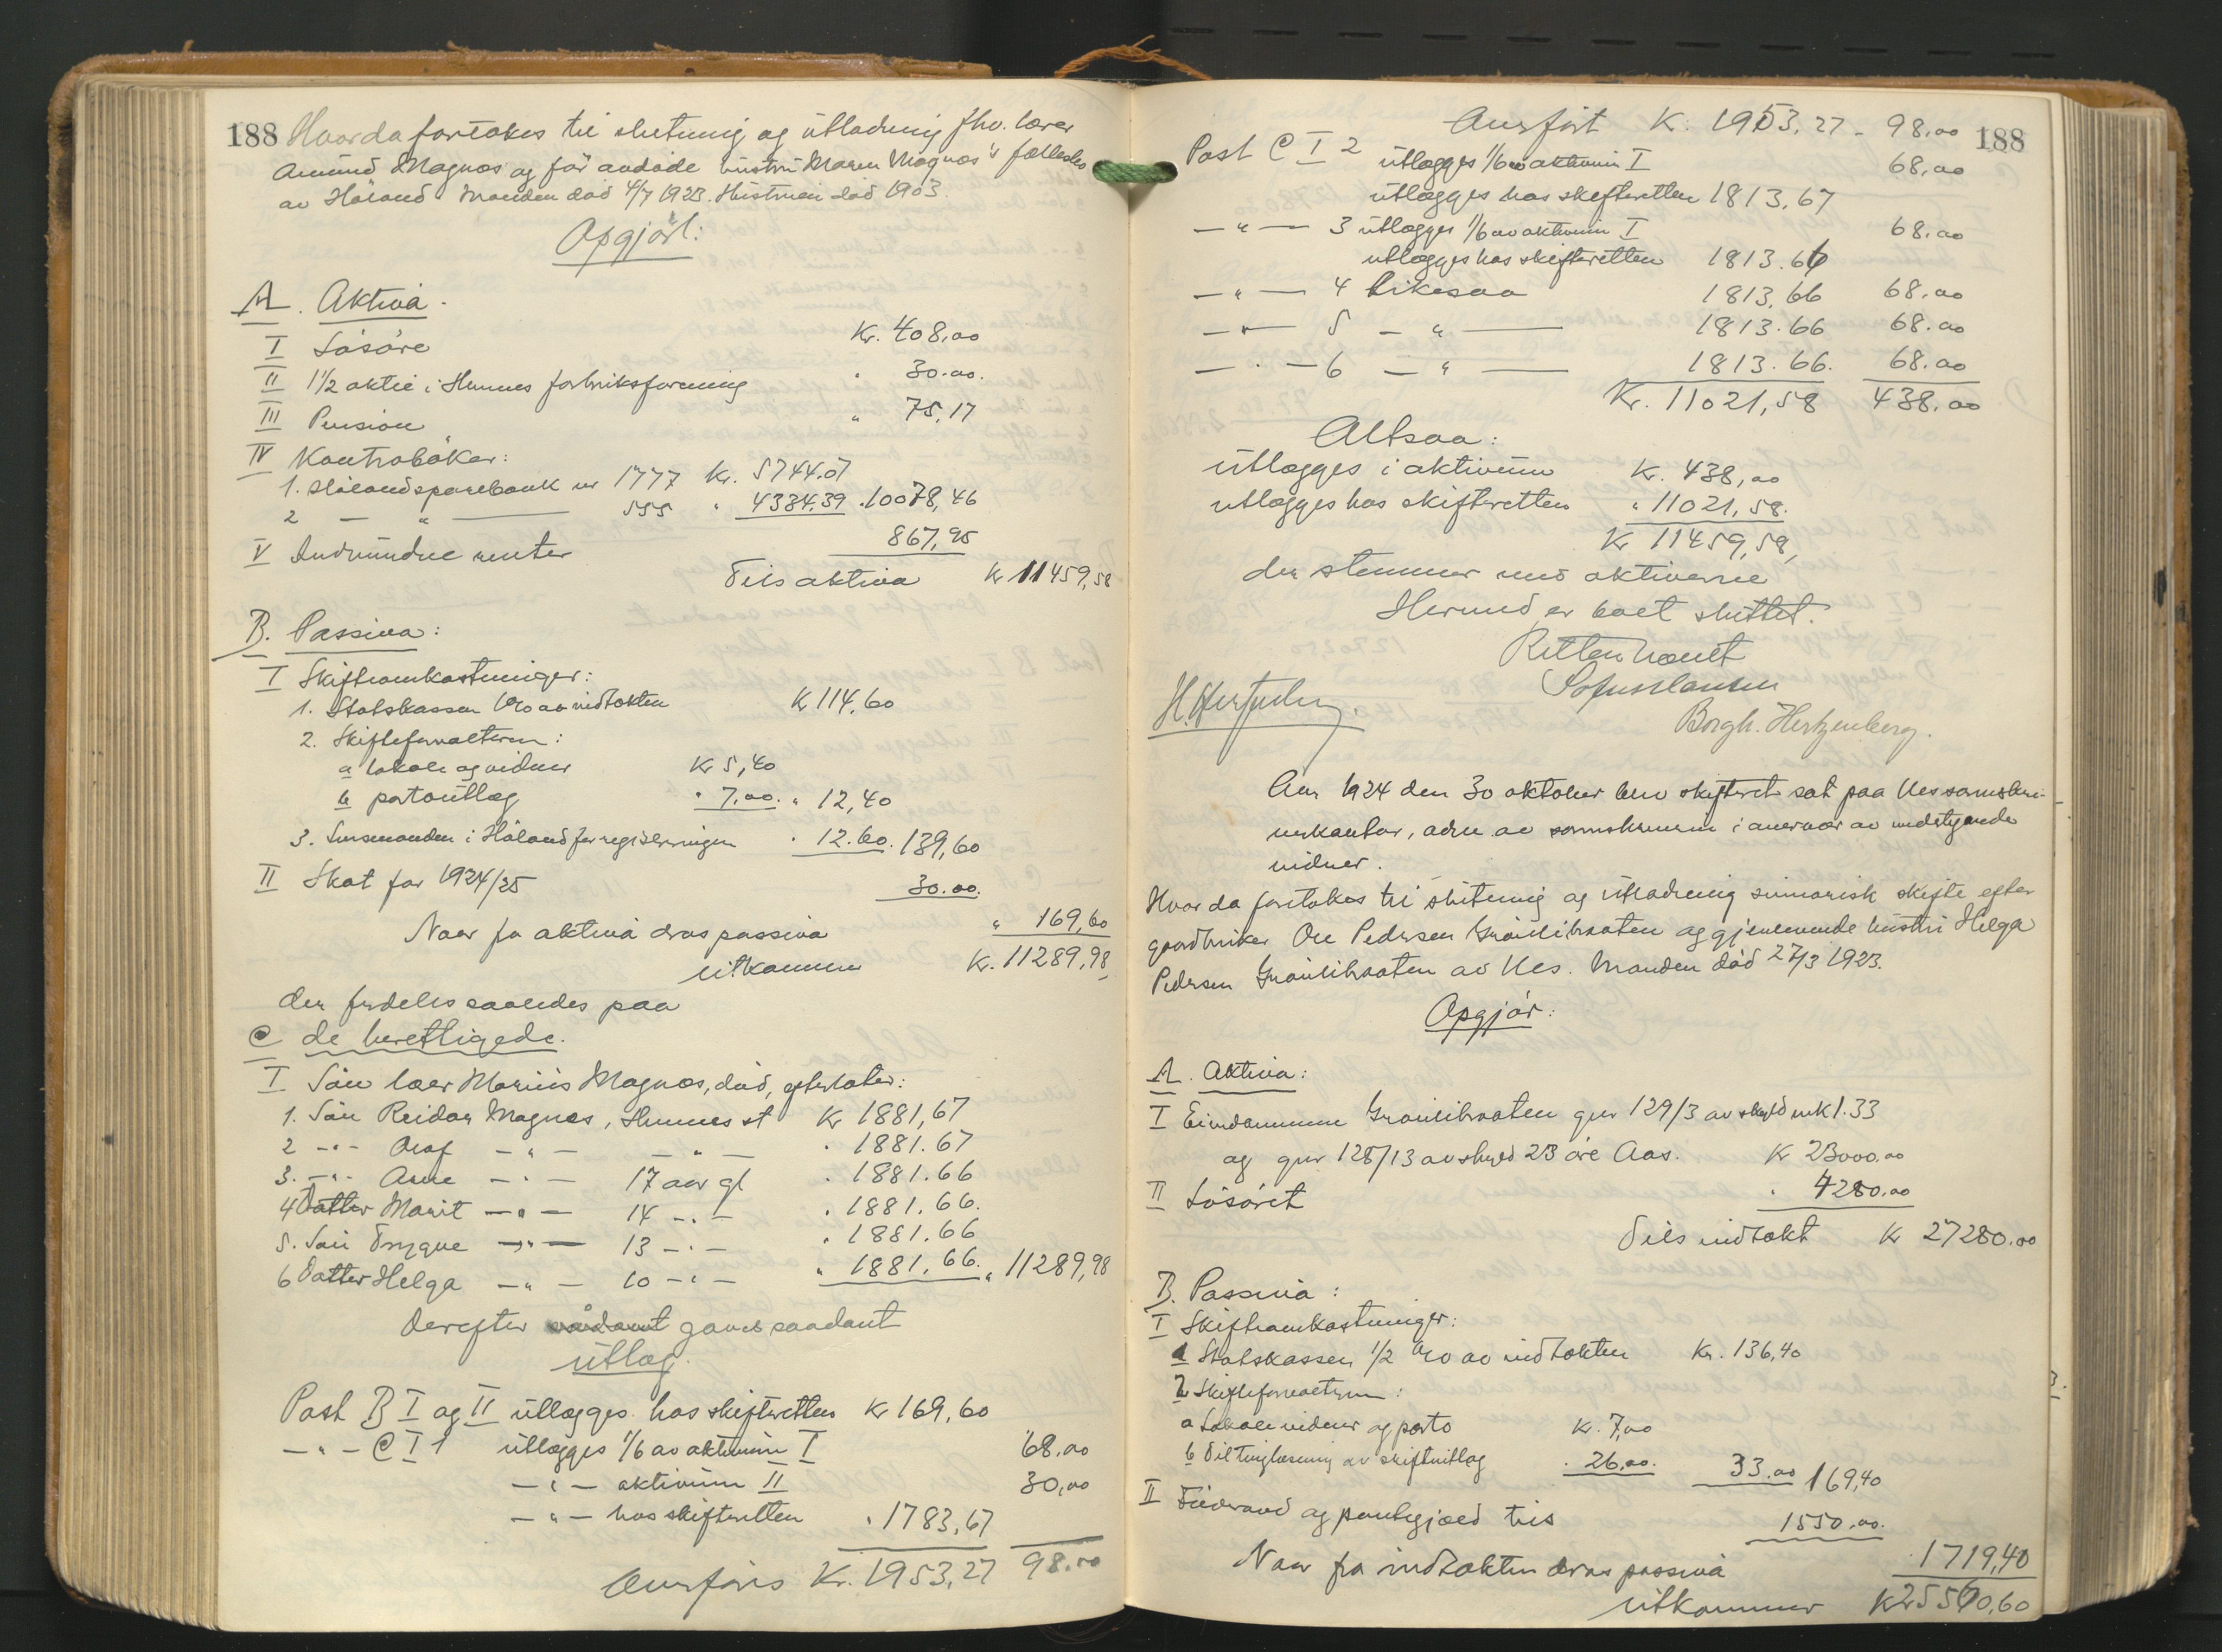 188 Hvorda foretokes til slutning og utlodning fhv. lærer
Amund Magnos og før avdøde hustru Maren Magnos's fællesbo
av Høland. Manden død 4/7 1923. Hustruen død 1903.
Opgjør:
A. Aktiva.
I Løsøre Kr. 408,00
II 1 1/2 aktie i Hemnes forbruksforening " 30.00.
III Pension " 75,17
IV Kontrabøker:
1. Hølandsparebank nr 1777 Kr. 5744.07
2 — " — 555 " 4334.39 . 10078,46
V Indvundne renter 867,95
Tils aktiva Kr 11459,58
B. Passiva:
I Skifteomkostninger:
1. Statskassen 1% av indtækten Kr 114,60
2. Skifteforvalteren:
a lokale og vidner Kr 5,40
b portoutlæg " 7.00. " 12,40
3. Lensmanden i Høland for registreringen . 12.60. 139,60
II Skat for 1924/25 30.00.
Naar fra aktiva dras passiva " 169,60
utkommer Kr. 11289,98
der fordeles saaledes paa
C de berettigede.
I Søn lærer Marius Magnos, død, efterlater:
1. Søn Reidar Magnos, Hemnes st Kr 1881,67
2 -"- Olaf -"- — " — . 1881.67
3. -"- Arne -"- 17 aar gl . 1881.66
4 Datter Marit -"- 14 -"- . 1881.66.
5. Søn Trygve -"- 13 -"- . 1881.66
6 Datter Helga -"- 10 -"- " 1881.66. " 11289,98
Derefter gaves saadant
utlæg.
Post B I og II utlægges hos skifteretten Kr 169,60
-"- C I 1 utlægges 1/6 av aktivum I 68.00
-"- aktivum II 30,00
-"- hos skifteretten " 1783,67
Overføres Kr. 1953,27 98.00
Overført K. 1953,27 - 98,00 188
Post C I 2 utlægges 1/6 av aktivum I 68,00
utlægges hos skifteretten 1813,67
— " — 3 utlægges 1/6 av aktivum I 68.00
utlægges hos skifteretten 1813.66
— " — 4 Likesaa 1813,66 68.00
— " — 5 — " — 1813.66 68.00
— " — 6 — " — 1813.66. 68.00
Kr. 11021,58 438.00
Altsaa:
utlægges i aktivum Kr. 438,00
utlægges hos skifteretten " 11021,58.
Kr 11459,58,
der stemmer med aktiverne
Hermed er boet sluttet.
Retten hævet
Borgh. Hertzenberg.
Aar 1924 den 30 oktober blev skifteret sat paa Nes sorenskri-
verkontor, adm. av sorenskriveren i overvær av undertegnede
vidner.
Hvor da foretokes til slutning og utlodning summarisk skifte efter
gaardbruker Ole Pedersen Graulibraaten og gjenlevende hustru Helga
Pedersen Graulibraaten av Nes. Manden død 27/3 1923.
Opgjør:
A. Aktiva:
I Eiendommene Graulibraaten gnr 129/3 av skyld mk 1.33
og gnr 128/13 av skyld 23 øre Aas. Kr 23000.00
II Løsøret . 4280.00
Tils indtækt Kr 27280.00
B. Passiva:
I Skifteomkostninger:
1 Statskassen 1/2 % av indtækten Kr. 136,40
2 Skifteforvalteren:
a Lokale vidner og porto Kr. 7,00
b Til tinglæsning av skifteutlæg . 26,00. 33.00 169,40
II og pantegjæld tils 1550.00.
Naar fra indtækten dras passiva . 1719,40
utkommer Kr 25560,60